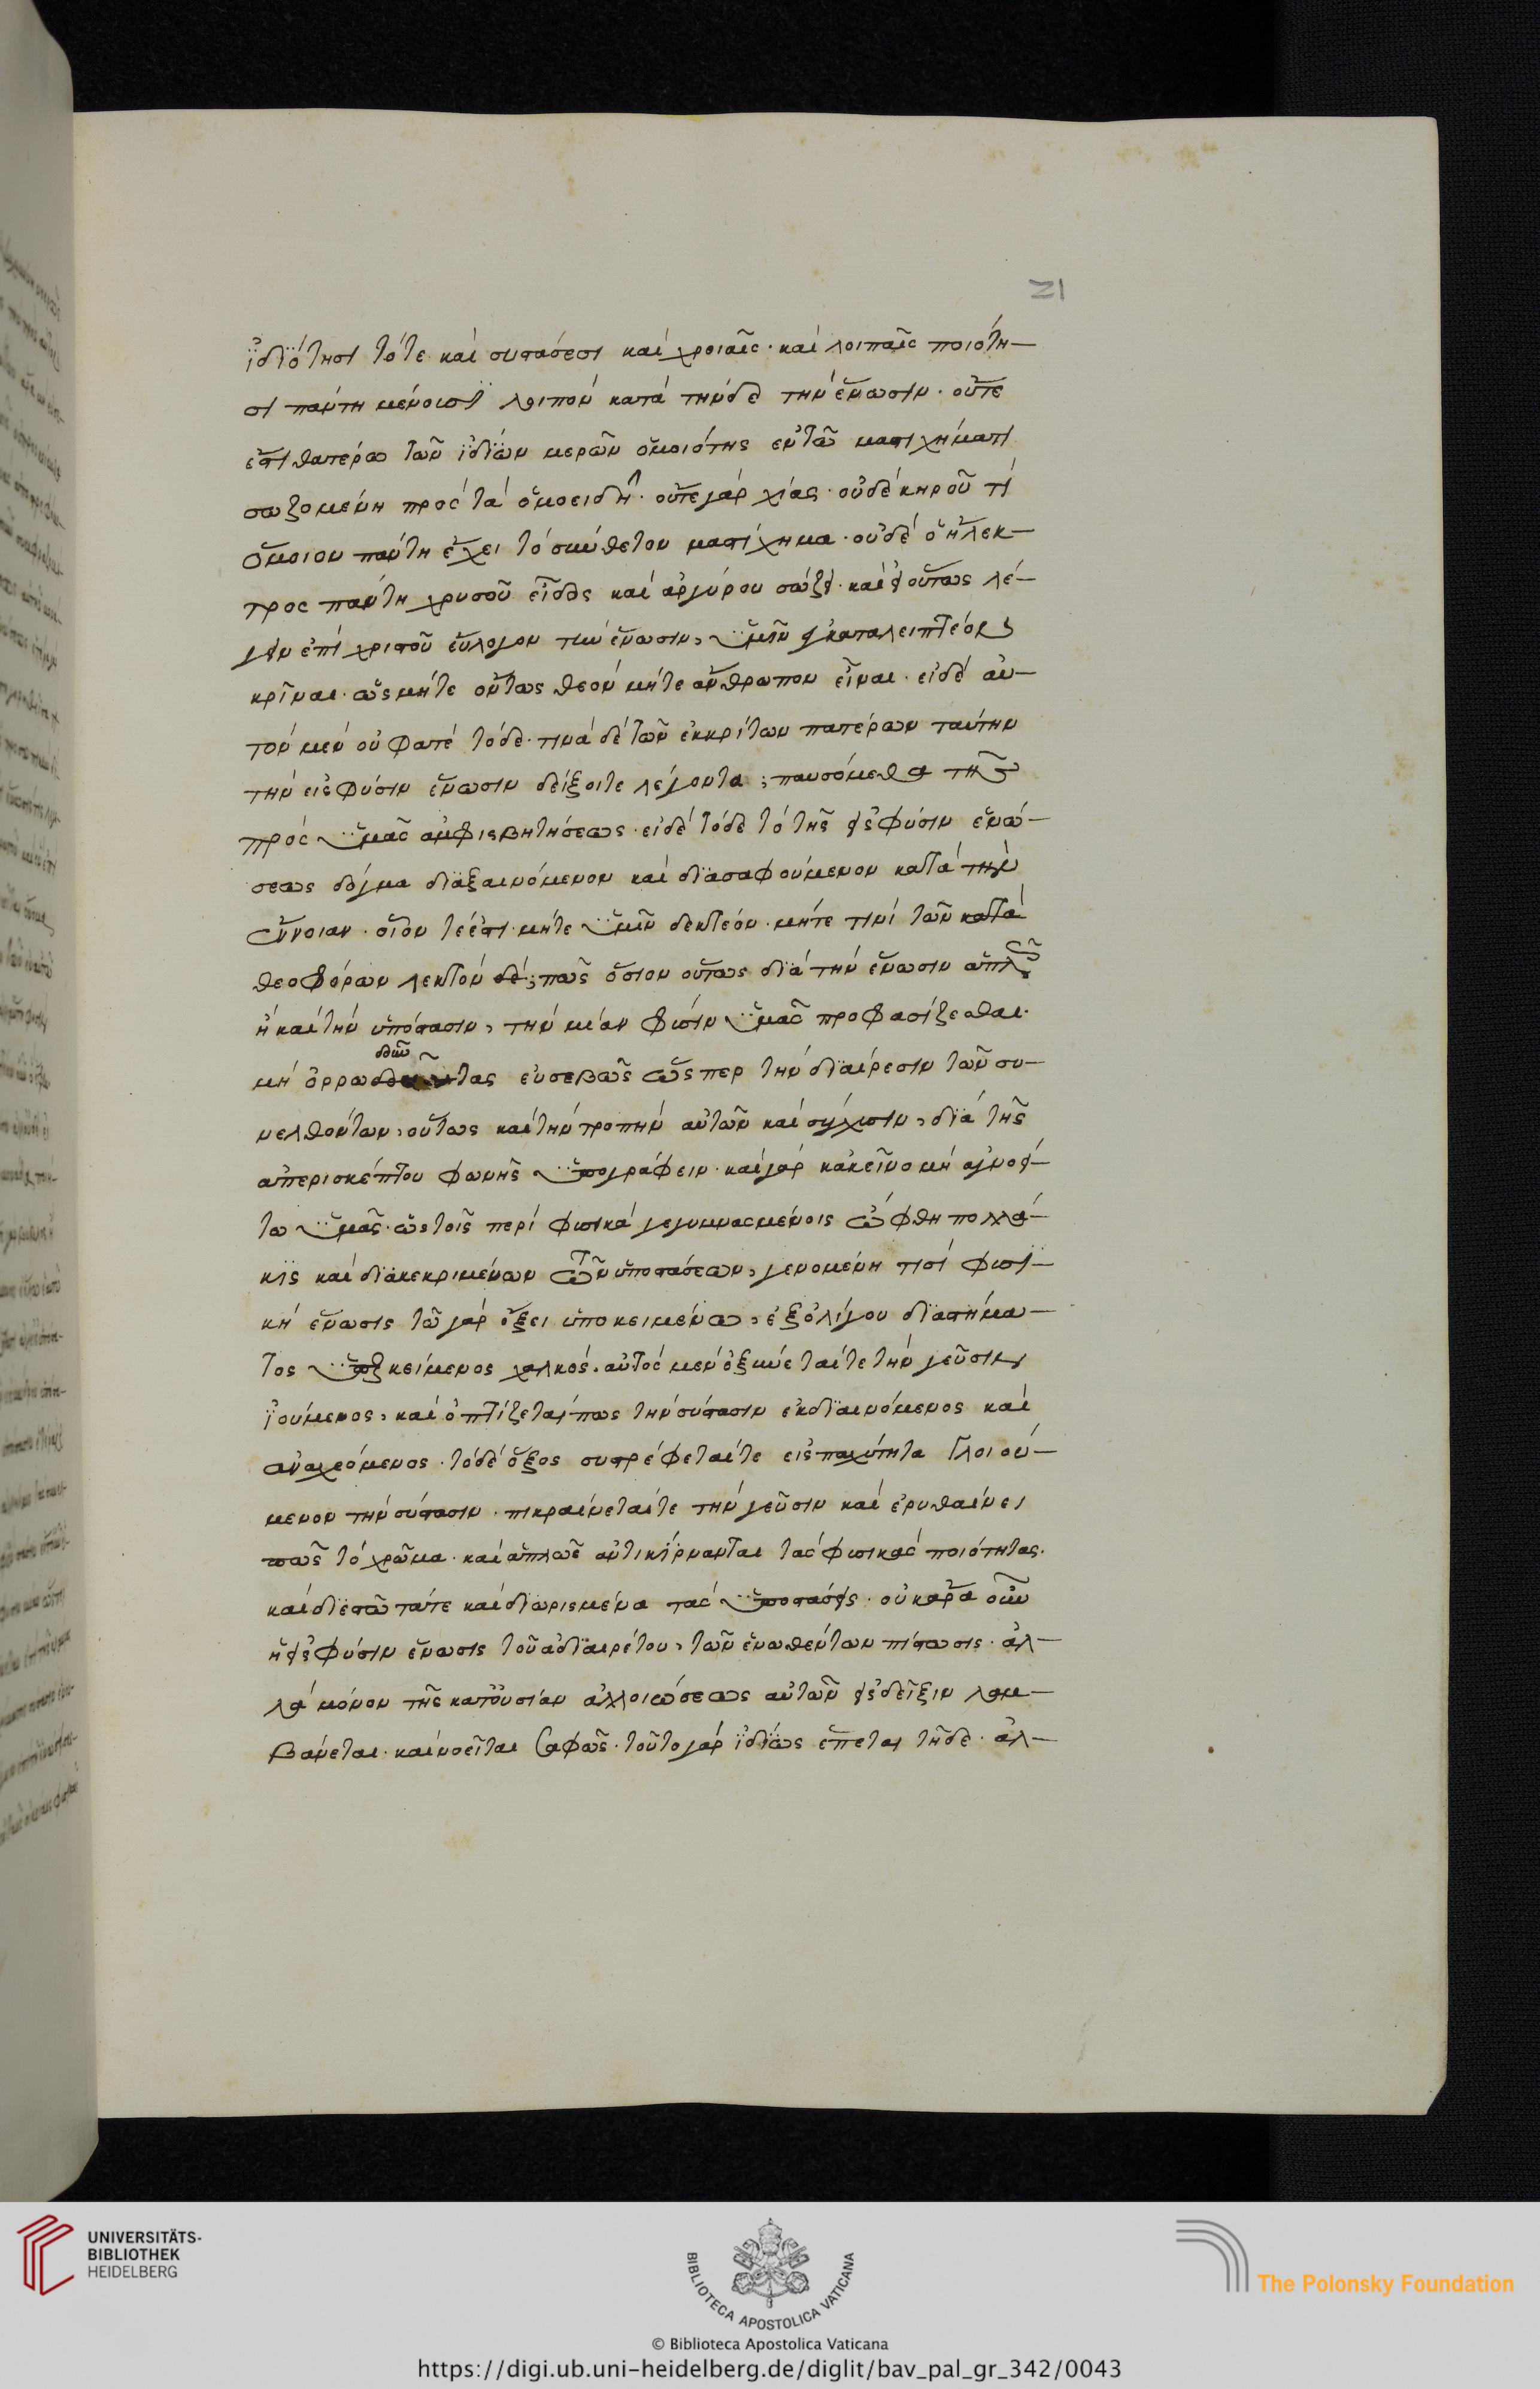 21
ἰδιότησι τότε καὶ συστάσεσι καὶ χροιαῖς· καὶ λοιπαῖς ποιότη-
σι παύτη μένοισϊ λοιπὸν κατὰ τήνδε τὴν ἕνωσιν· οὔτε
ἐστὶ θατέρω τῶν ἰδίων μερῶν ὁμοιότης ἐν τῶ μαστιχήματι
σωζομένη πρὸς τὰ ὁμοειδῆ· οὔτε γὰρ χίας· οὐδὲ κηροῦ τί
ὅμοιον παύτη ἔχει τὸ σύνθετον μαστίχημα· οὐδὲ ὁ ἤλεκ-
τρος παύτη χρυσοῦ εἶδος καὶ ἀργύρου σώζει· καὶ εἰ οὕτως λέ-
γειν ἐπὶ χριστοῦ εὔλογον τὴν ἕνωσιν, ὑμῖν ἐγκαταλειπτέον
κρῖναι· ὡς μήτε ὄντως θεὸν μήτε ἄνθρωπον εἶναι· εἰ δὲ αὐ-
τὸν μὲν οὐ φατὲ τόδε· τινὰ δὲ τῶν ἐκκρίτων πατέρων ταύτην
τὴν εἰς φύσιν ἕνωσιν δείξοιτε λέγοντα; παυσόμεθα τῆς
πρὸς ὑμᾶς ἀμφισβητήσεως· εἰ δὲ τόδε τὸ τῆς εἰς φύσιν ἑνώ-
σεως δόγμα διαξαινόμενον καὶ διασαφούμενον κατὰ τὴν
ἔννοιαν· οἷόν τε ἐστι· μήτε ὑμῖν δεκτέον· μήτε τινὶ τῶν κατὰ
θεοφόρων λεκτὸν δέ; πῶς ὅσιον οὕτως διὰ τὴν ἕνωσιν ἁπλῶς
ἢ καὶ τὴν ὑπόστασιν, τὴν μίαν φύσιν ὑμᾶς προφασίζεσθαι·
δῶν
μὴ ὀρρωδ τας εὐσεβῶς ὥσπερ τὴν διαίρεσιν τῶν συ-
νελθόντων, οὕτως καὶ τὴν τροπὴν αὐτῶν καὶ σύγχυσιν, διὰ τῆς
ἀπερισκέπτου φωνῆς ὑπογράφειν· καὶ γὰρ κἀκεῖνο μὴ ἀγνοεί-
τω ὑμᾶς· ὡς τοῖς περὶ φυσικὰ γεγυμνασμένοις ὤφθη πολλά-
κις καὶ διακεκριμένων τῶν ὑποστάσεων, γενομένη τισὶ φυσι-
κὴ ἕνωσις τῶ γὰρ ὄξει ὑποκειμένω, ἐξ ὀλίγου διαστήμα-
τος κείμενος χαλκός· αὐτὸς μὲν ὀξύνεταί τε τὴν γεῦσιν
ἰούμενος, καὶ ὀπτίζεται πως τὴν σύστασιν ἐκδιαινόμενος καὶ
ἀναχεόμενος· τὸ δὲ ὄξος συστρέφεταί τε εἰς παχύτητα γλοιού-
μενον τὴν σύστασιν· πικραίνεταί τε τὴν γεῦσιν καὶ ἐρυθαίνει
πῶς τὸ χρῶμα· καὶ ἁπλῶς ἀντικίρνανται τὰς φυσικὰς ποιότητας·
καὶ διεστῶτά τε καὶ διωρισμένα τὰς ὑποστάσεις· οὐκ ἄρα οὖν
ἡ εἰς φύσιν ἕνωσις τοῦ ἀδιαιρέτου, τῶν ἑνωθέντων πίστωσις· ἀλ-
λὰ μόνον τῆς κατ' οὐσίαν ἀλλοιώσεως αὐτῶν εἰς δεῖξιν λαμ-
βάνεται· καὶ νοεῖται σαφῶς· τοῦτο γὰρ ἰδίως ἕπεται τῆδε· ἀλ-
UNIVERSITÄTS-
BIBLIOTHEK
HEIDELBERG
BIBLIOTECA APOSTOLICA VATICANA
The Polonsky Foundation
© Biblioteca Apostolica Vaticana
https://digi.ub.uni-heidelberg.de/diglit/bav_pal_gr_342/0043